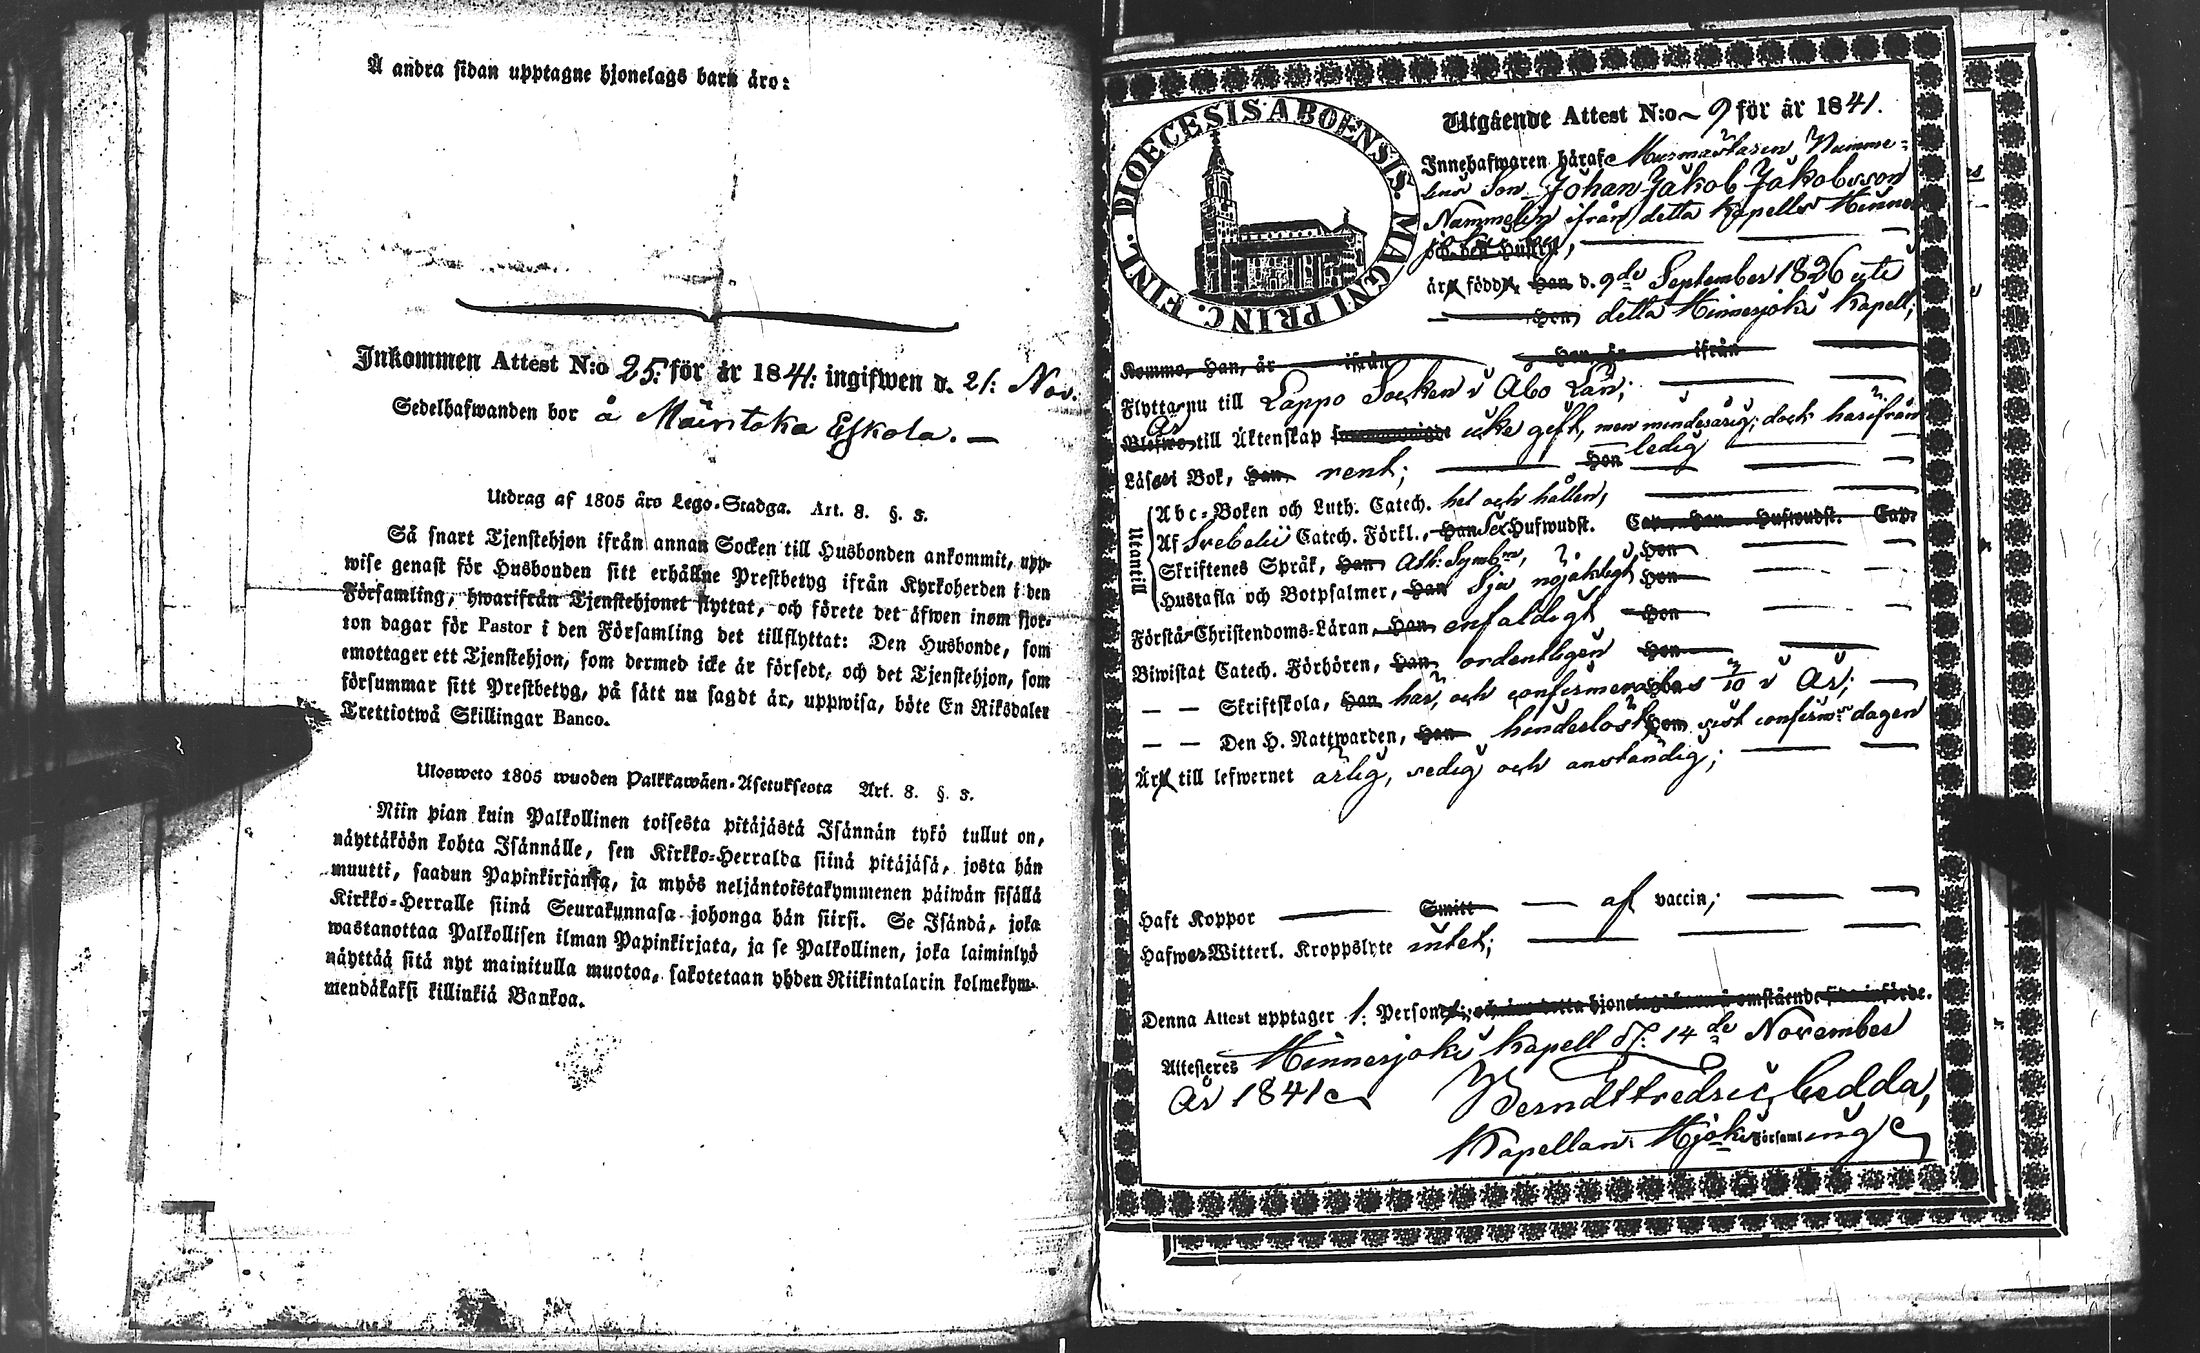 Å andra sidan upptagne hjonelags barn äro:
Inkommen Attest N:o 25: för år 1841: ingifwen d. 21: Nov.
Sedelhafwanden bor å Mäntoka Eskola.
Utdrag af 1805 års Lego-Stadga. Art. 8. §. 3.
Så snart Tjenstehjon ifrån annan Socken till Husbonden ankommit, upp-
wise genast för Husbonden sitt erhållne Prestbetyg ifrån Kyrkoherden i den
Församling, hwarifrån Tjenstehjonet flyttat, och förete det äfwen inom fjor-
ton dagar för Pastor i den Församling det tillflyttat: Den Husbonde, som
emottager ett Tjenstehjon, som dermed icke är försedt, och det Tjenstehjon, som
försummar sitt Prestbetyg, på sätt nu sagdt är, uppwisa, böte En Riksdaler
Trettiotwå Skillingar Banco.
Ulosweto 1805 wuoden Palkkawäen-Asetuksesta Art. 8. §. 3.
Niin pian kuin Palkollinen toisesta pitäjästä Isännän tykö tullut on,
näyttäköön kohta Isännälle, sen Kirkko-Herralda siinä pitäjäsä, josta hän
muutti, saadun Papinkirjansa, ja myös neljäntoistakymmenen päiwän sisällä
Kirkko-Herralle siinä Seurakunnasa johonga hän siirsi. Se Isändä, joka
wastanottaa Palkollisen ilman Papinkirjata, ja se Palkollinen, joka laiminlyö
näyttää sitä nyt mainitulla muotoa, sakotetaan yhden Riikintalarin kolmekym-
mendäkaksi killinkiä Bankoa.
DIOECESIS ABOENSIS. MAGNI PRINC. FINL.
Utgående Attest N:o 9 för år 1841.
Innehafwaren häraf Murmästaren Numme-
lins Son Johan Jakob Jakobsson
Nummelin ifrån detta Kapells Hinner
och dess Hustru,
är född, Han d. 9de September 1826 uti
Hon detta Hinnerjoki Kapell;
Komma, Han, år ifrån Hon, år ifrån
Flyttar nu till Lappo Socken i Åbo Län;
Är till Äktenskap icke gift, men minderårig; dock härifrån
ledig
Läser i Bok, Han rent; Hon
Utantill
Abc-Boken och Luth. Catech. hel och hållen,
Af Svebelii Catech. Förkl., Han Sex Hufwudst. Cap. Hon Hufwudst. Cap.
Skriftenes Språk, Han Ath: Symb:m, Hon
Hustafla och Botpsalmer, Han Sju nöjaktigt Hon
Förstår Christendoms-Läran, Han enfaldigt Hon
Biwistat Catech. Förhören, Han ordentligen Hon
— — Skriftskola, Han har, och confirmerades i År;
— — Den H. Nattwarden, Han hinderlöst Hon sist confirm:s dagen
Är till lefwernet ärlig, sedig och anständig;
Haft Koppor Smitt af vaccin;
Hafwer Witterl. Kroppslyte intet;
Denna Attest upptager 1: Person; och äro detta hjonelags barn å omstående sida införde.
Attesteres Hinnerjoki Kapell d. 14de November
År 1841.
Berndt Fredric Cedda,
Kapellan. Hjoki Församling